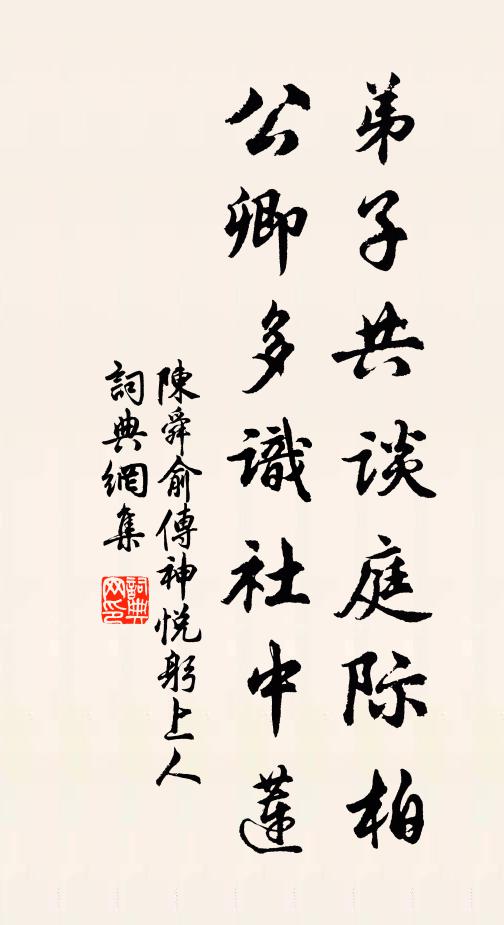 弟子共谈庭际柏
公卿多識社中蓮
陳舜俞傳神悅躬上人
詞典網集
詞典网印